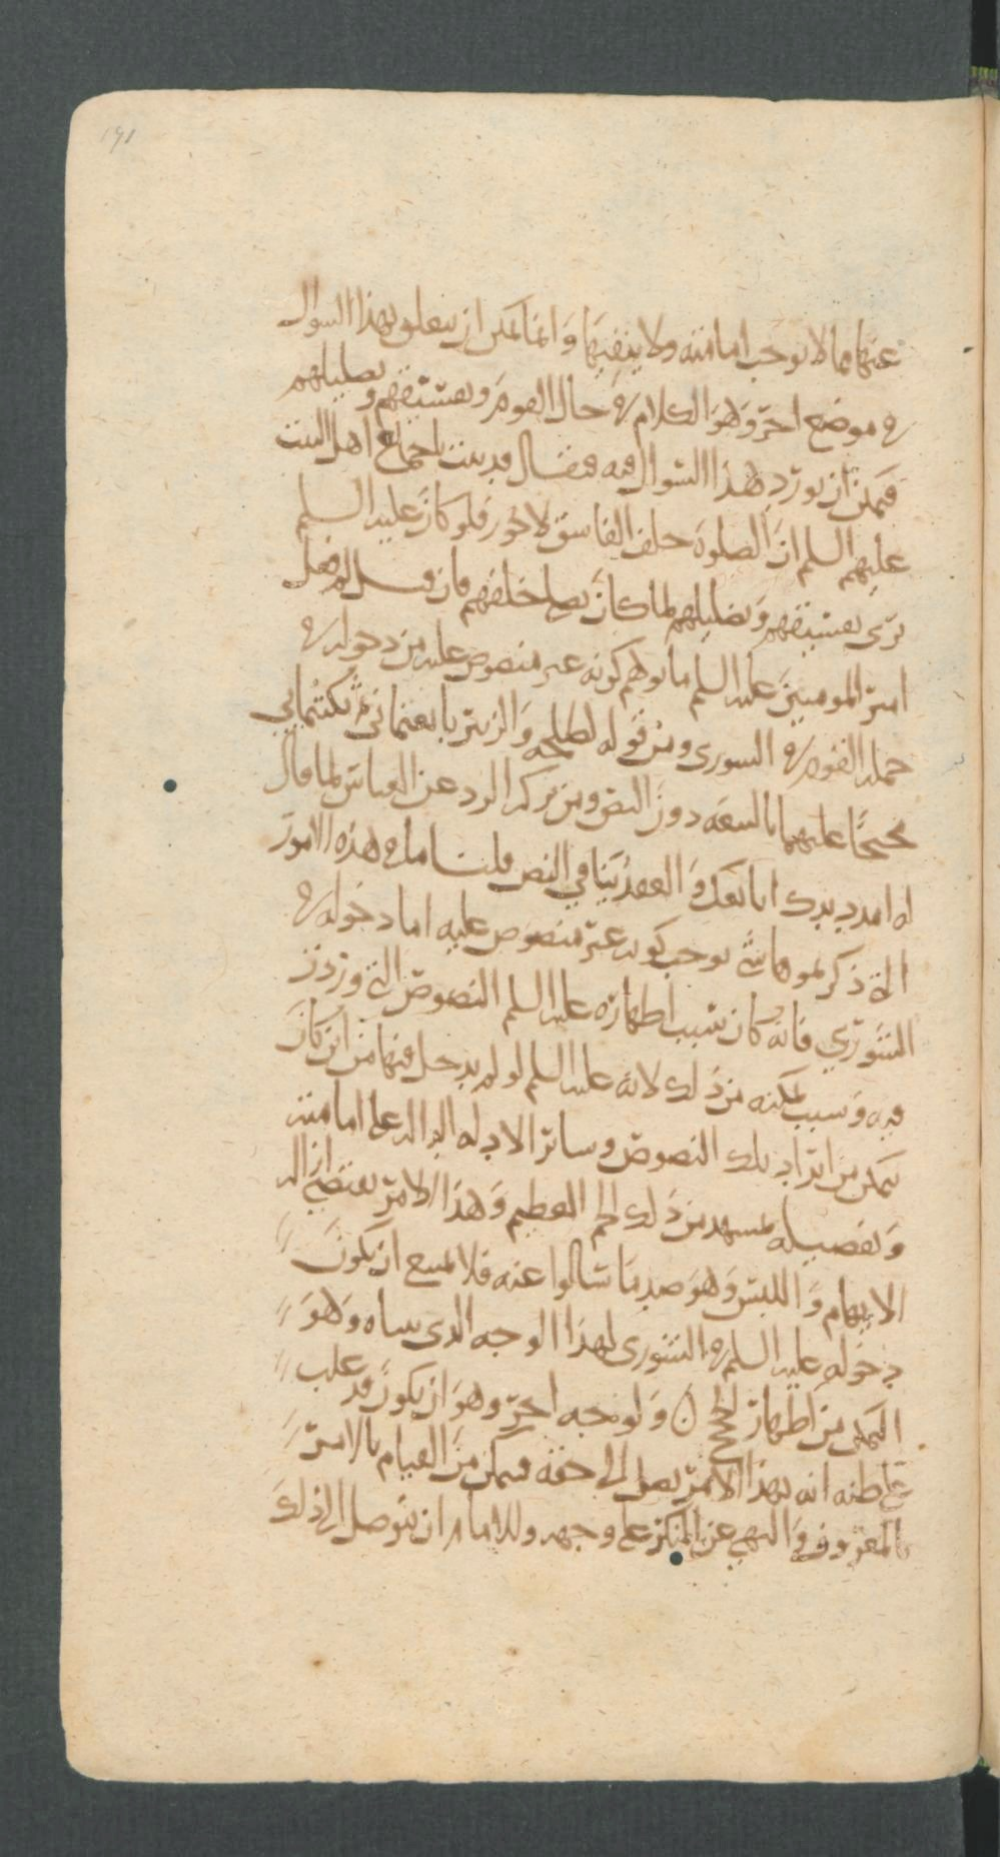 191
عنها مما لا يوجب امامته ولا ينفيها وانما يمكن ان يتعلق بهذا السوال
في موضع اخر وهو الكلام في حال القوم وتفسيقهم وتضليلهم
فيمكن ان يورد هذا السوال فيه فيقال قد ثبت باجماع اهل البيت
عليهم السلم ان الصلوة خلف الفاسق لا تجوز فلو كان عليه السلم
يرى تفسيقهم وتضليلهم لما كان يصلي خلفهم فان قيل افعل
امير المومنين عليه السلم ما يوهم كونه غير منصوص عليه من دخوله في
جملة القوم في الشورى ومن قوله لطلحة والزبير بايعتماني ثم نكثتما بي
محتجا عليهما بالبيعة دون النص ومن تركه الرد عن العباس لما قال
له امدد يدك ابايعك والعقد ينافي النص قلنا ما في هذه الامور
التي ذكرتموها شي يوجب كونه غير منصوص عليه اما دخوله في
الشورى فانه كان سبب اظهاره عليه السلم النصوص التي وردت
فيه وسبب تمكنه من ذلك لانه عليه السلم لو لم يدخل فيها من اين كان
يتمكن من ايراد تلك النصوص وساير الادلة الدالة على امامته
وتفضيله بمشهد من ذلك الجم العظيم وهذا الامر يقتضي ازالة
الايهام واللبس وهو ضد ما سالوا عنه فلا يمتنع ان يكون
دخوله عليه السلم في الشورى لهذا الوجه الذي بيناه وهو
التمكن من اظهار الحجج ولوجه اخر وهو ان يكون قد غلب
على ظنه انه بهذا الامر يصل الى حقه فيمكن من القيام بالامر
بالمعروف والنهي عن المنكر على وجهه وللامام ان يتوصل الى ذلك